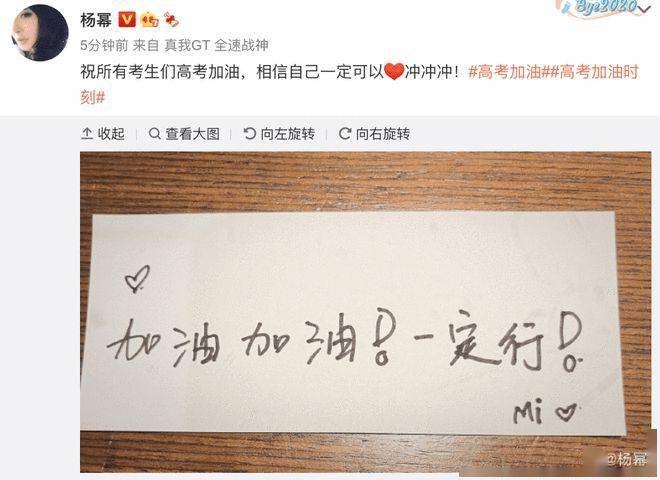 Bye2020
杨幂
5分钟前 来自 真我GT 全速战神
祝所有考生们高考加油，相信自己一定可以❤冲冲冲！#高考加油##高考加油时
刻#
收起 查看大图 向左旋转 向右旋转
加油加油！一定行！
Mi
@杨幂